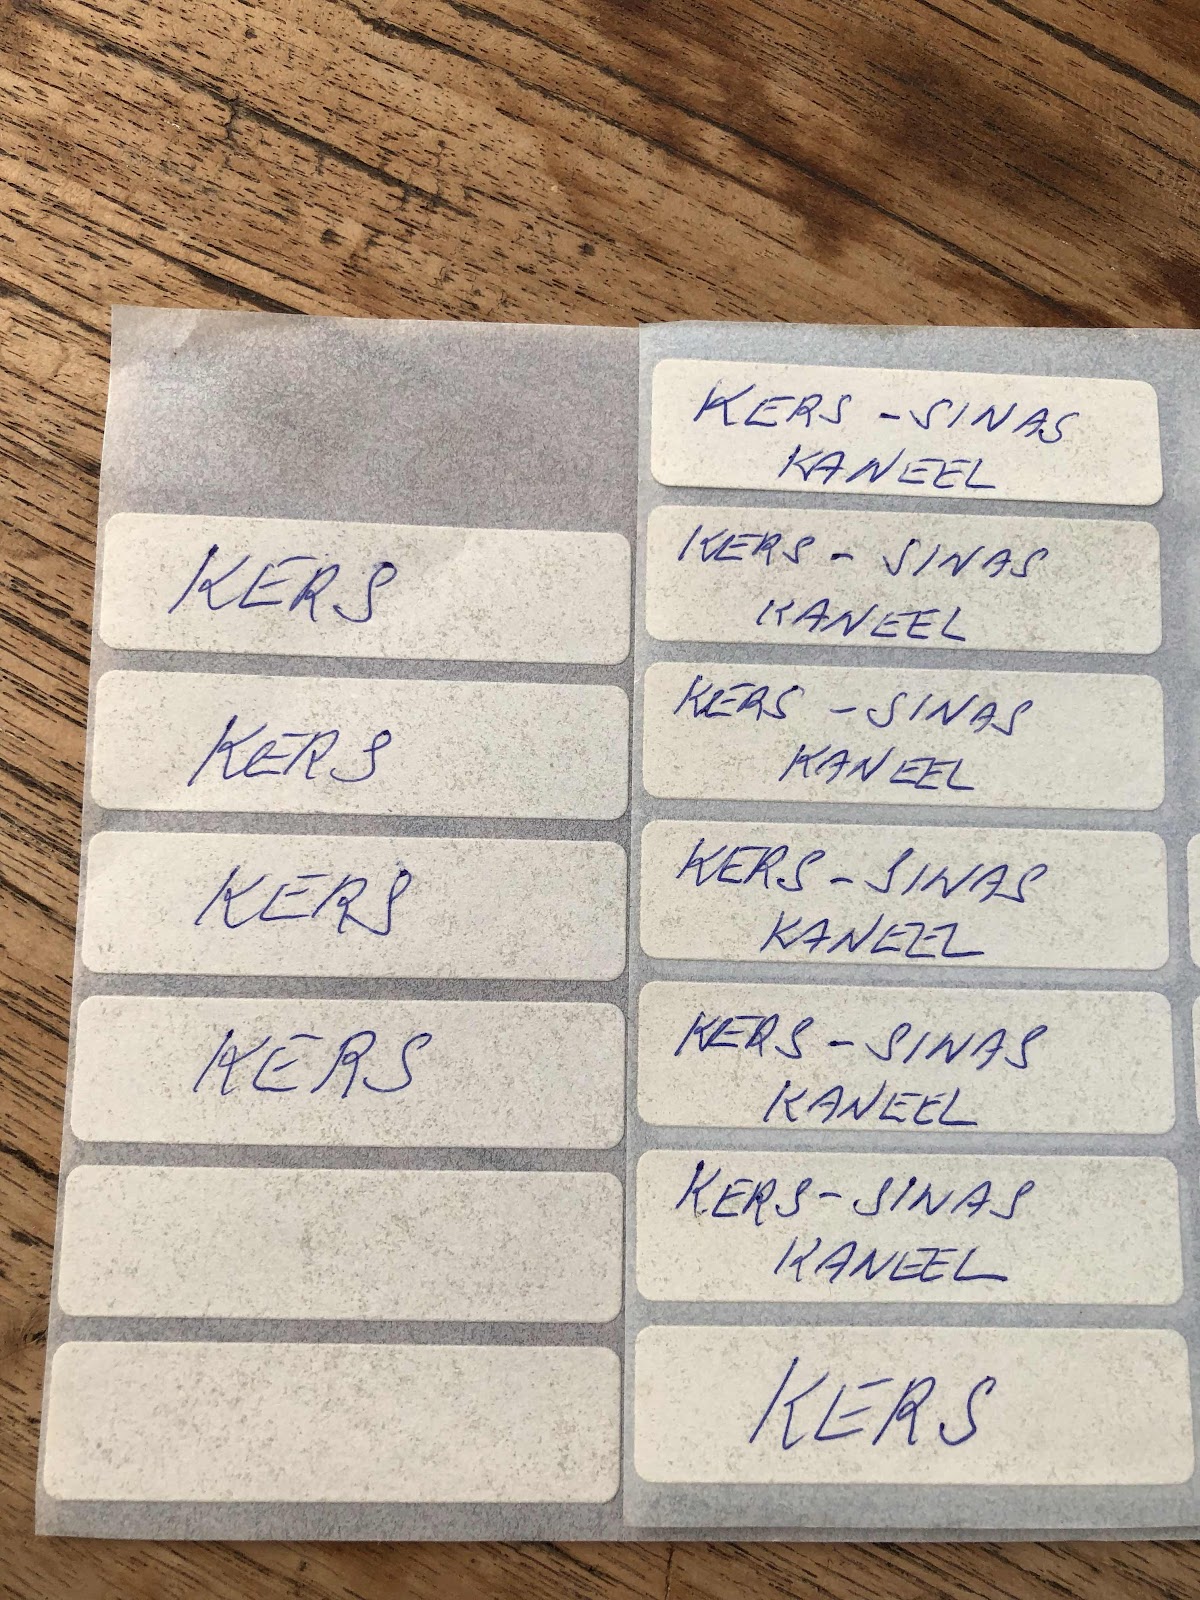 KERS
KERS
KERS
KERS
KERS - SINAS
KANEEL
KERS - SINAS
KANEEL
KERS - SINAS
KANEEL
KERS - SINAS
KANEEL
KERS - SINAS
KANEEL
KERS - SINAS
KANEEL
KERS